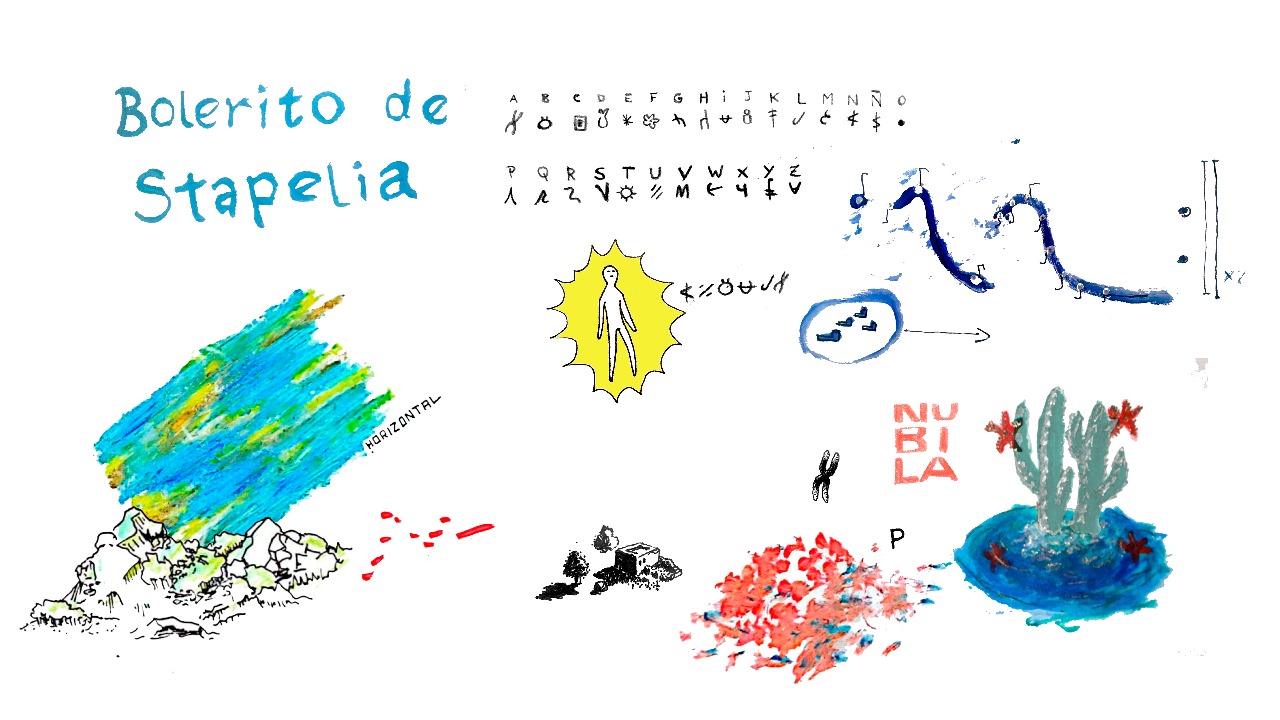 Bolerito de
Stapelia
A B C D E F G H i J K L M N Ñ O
P Q R S T U V W X Y Z
HORIZONTAL
NU
BI
LA
P